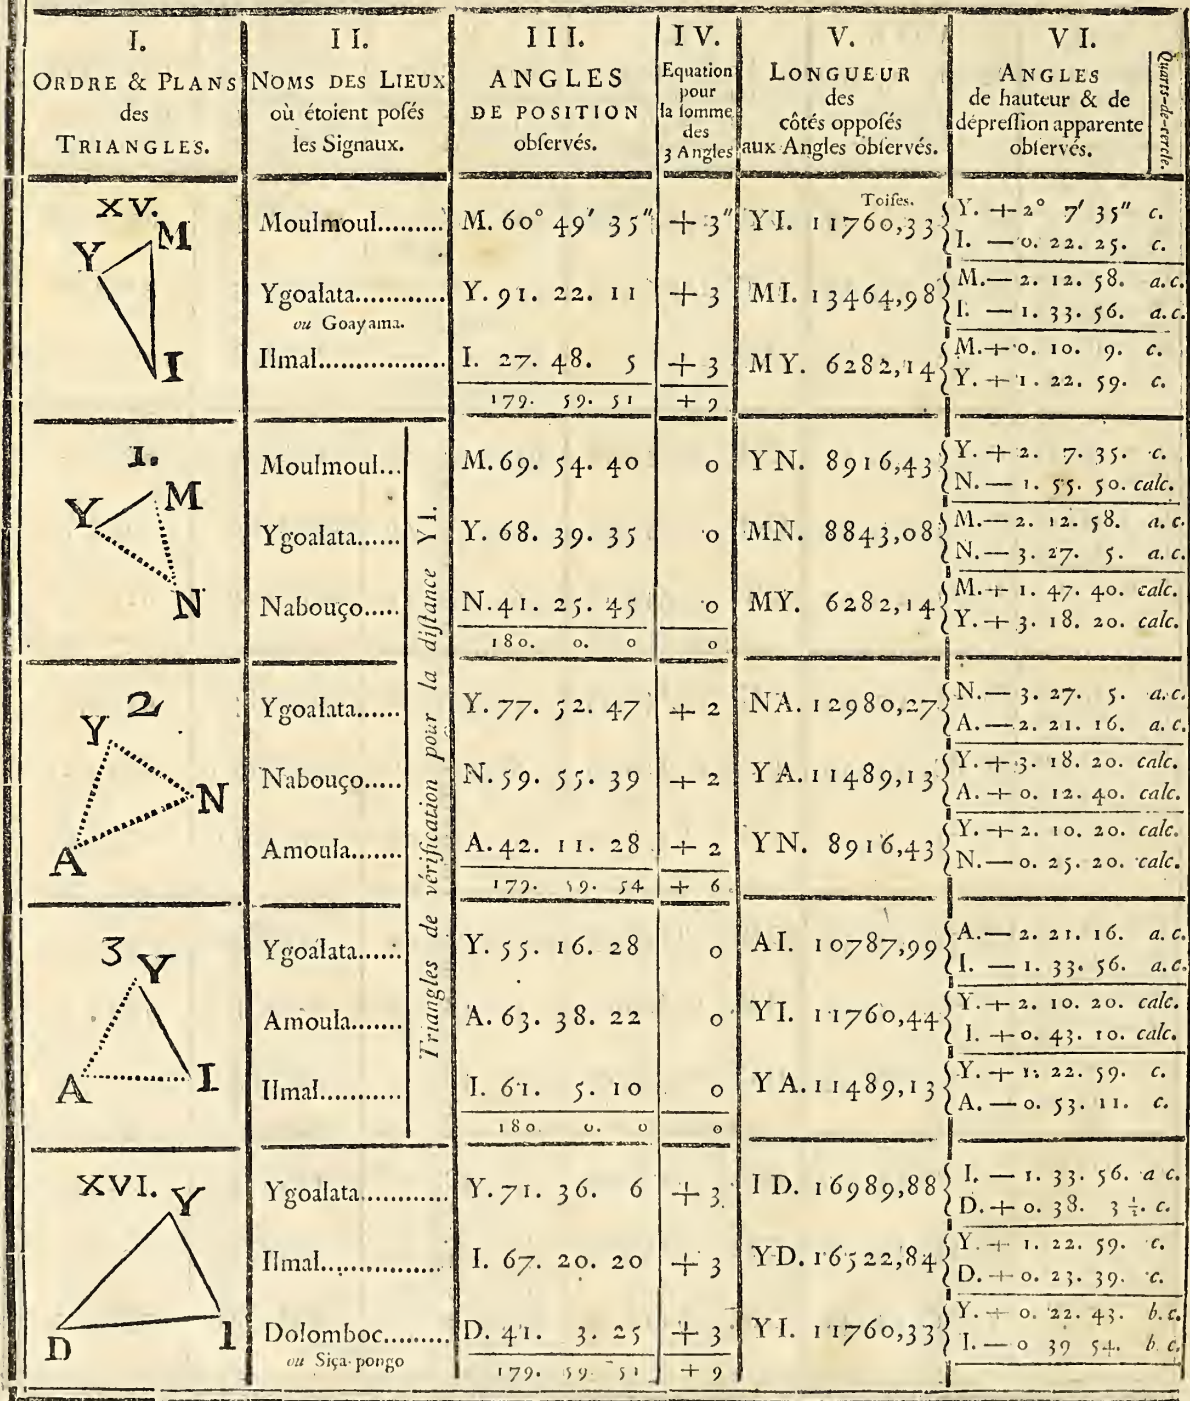 I.
ORDRE & PLANS
des
TRIANGLES.
II.
NOMS DES LIEUX
où étoient poſés
les Signaux.
III.
ANGLES
DE POSITION
obſervés.
IV.
Equation
pour
la ſomme
des
3 Angles
V.
LONGUEUR
des
côtés oppoſés
aux Angles obſervés.
VI.
ANGLES
de hauteur & de
dépreſſion apparente
obſervés.
Quarts-de-cercle.
XV.
Y M
I
Toiſes.
Moulmoul......... M. 60° 49′ 35″ + 3″ YI. 11760,33 { Y. + 2° 7′ 35″ c.
I. — 0. 22. 25. c.
Ygoalata............ Y. 91. 22. 11 + 3 MI. 13464,98 { M. — 2. 12. 58. a.c.
ou Goayama.
I. — 1. 33. 56. a.c.
Ilmal.................. I. 27. 48. 5 + 3 MY. 6282,14 { M. + 0. 10. 9. c.
Y. + 1. 22. 59. c.
179. 59. 51 + 9
1.
Y M
N
Triangles de vérification pour la diſtance YI.
Moulmoul... M. 69. 54. 40 0 YN. 8916,43 { Y. + 2. 7. 35. c.
N. — 1. 55. 50. calc.
Ygoalata...... Y. 68. 39. 35 0 MN. 8843,08 { M. — 2. 12. 58. a.c.
N. — 3. 27. 5. a.c.
Nabouço..... N. 41. 25. 45 0 MY. 6282,14 { M. + 1. 47. 40. calc.
Y. + 3. 18. 20. calc.
180. 0. 0 0
2
Y
N
A
Ygoalata...... Y. 77. 52. 47 + 2 NA. 12980,27 { N. — 3. 27. 5. a.c.
A. — 2. 21. 16. a.c.
Nabouço..... N. 59. 55. 39 + 2 YA. 11489,13 { Y. + 3. 18. 20. calc.
A. + 0. 12. 40. calc.
Amoula....... A. 42. 11. 28 + 2 YN. 8916,43 { Y. + 2. 10. 20. calc.
N. — 0. 25. 20. calc.
179. 59. 54 + 6
3
Y
A I
Ygoalata...... Y. 55. 16. 28 0 AI. 10787,99 { A. — 2. 21. 16. a.c.
I. — 1. 33. 56. a.c.
Amoula....... A. 63. 38. 22 0 YI. 11760,44 { Y. + 2. 10. 20. calc.
I. + 0. 43. 10. calc.
Ilmal........... I. 61. 5. 10 0 YA. 11489,13 { Y. + 1. 22. 59. c.
A. — 0. 53. 11. c.
180. 0. 0 0
XVI.
Y
D I
Ygoalata............ Y. 71. 36. 6 + 3 ID. 16989,88 { I. — 1. 33. 56. a c.
D. + 0. 38. 3 ½. c.
Ilmal................ I. 67. 20. 20 + 3 YD. 16522,84 { Y. + 1. 22. 59. c.
D. + 0. 23. 39. c.
Dolomboc......... D. 41. 3. 25 + 3 YI. 11760,33 { Y. + 0. 22. 43. b.c.
ou Siça-pongo
I. — 0 39 54. b.c.
179. 59. 51 + 9